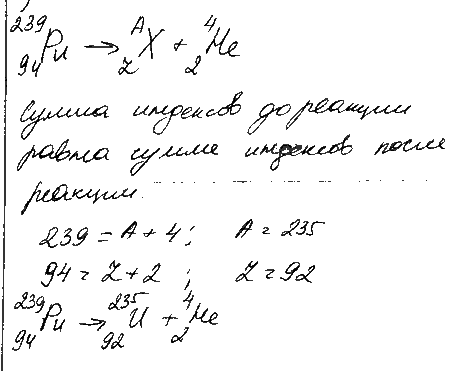 ²³⁹₉₄Pu → ᴬ_ZX + ⁴₂He
Сумма индексов до реакции
равна сумме индексов после
реакции.
239 = A + 4; A = 235
94 = Z + 2; Z = 92
²³⁹₉₄Pu → ²³⁵₉₂U + ⁴₂He